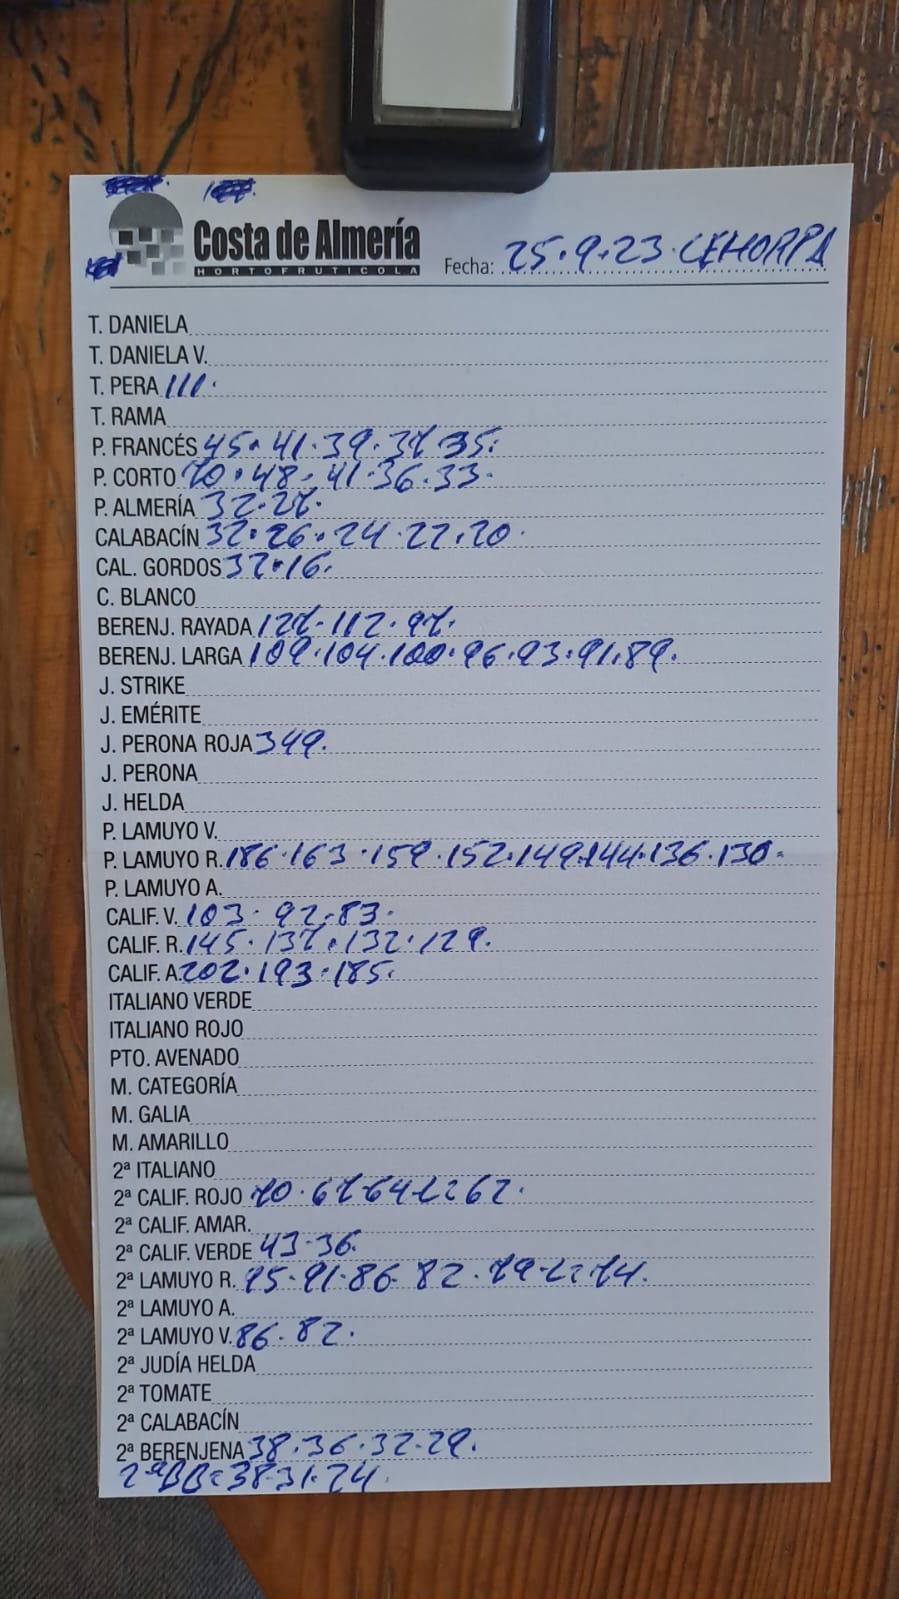 Costa de Almería
HORTOFRUTICOLA
Fecha: 25.9.23. CEHORPA
T. DANIELA
T. DANIELA V.
T. PERA 111.
T. RAMA
P. FRANCÉS 45. 41. 39. 37. 35.
P. CORTO 70. 48. 41. 36. 33.
P. ALMERÍA 32. 27.
CALABACÍN 32. 26. 24. 22. 20.
CAL. GORDOS 37. 16.
C. BLANCO
BERENJ. RAYADA 127. 112. 97.
BERENJ. LARGA 109. 104. 100. 96. 93. 91. 89.
J. STRIKE
J. EMÉRITE
J. PERONA ROJA 349.
J. PERONA
J. HELDA
P. LAMUYO V.
P. LAMUYO R. 186. 163. 159. 152. 149. 144. 136. 130.
P. LAMUYO A.
CALIF. V. 103. 92. 83.
CALIF. R. 145. 137. 132. 129.
CALIF. A. 202. 193. 185.
ITALIANO VERDE
ITALIANO ROJO
PTO. AVENADO
M. CATEGORÍA
M. GALIA
M. AMARILLO
2ª ITALIANO
2ª CALIF. ROJO 70. 67. 64. L= 62.
2ª CALIF. AMAR.
2ª CALIF. VERDE 43. 36.
2ª LAMUYO R. 95. 91. 86. 82. 79. L= 74.
2ª LAMUYO A.
2ª LAMUYO V. 86. 82.
2ª JUDÍA HELDA
2ª TOMATE
2ª CALABACÍN
2ª BERENJENA 38. 36. 32. 29.
2ª BB= 38. 31. 24.